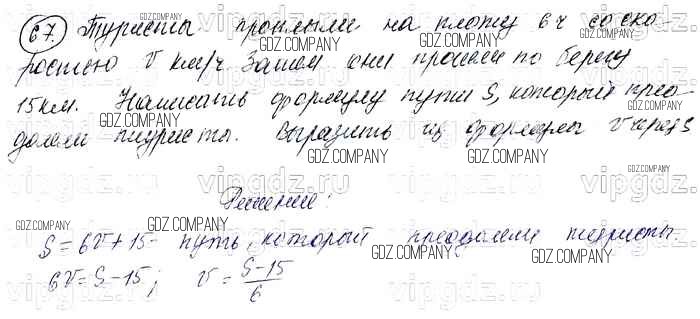 67. Туристы проплыли на плоту 6 ч со ско-
ростью v км/ч. Затем они прошли по берегу
15 км. Написать формулу пути S, который прео-
долели туристы. Выразить из формулы v через S
Решение:
S = 6v + 15 - путь, который преодолели туристы.
6v = S - 15; v = S-15/6
GDZ.COMPANY
vipgdz.ru